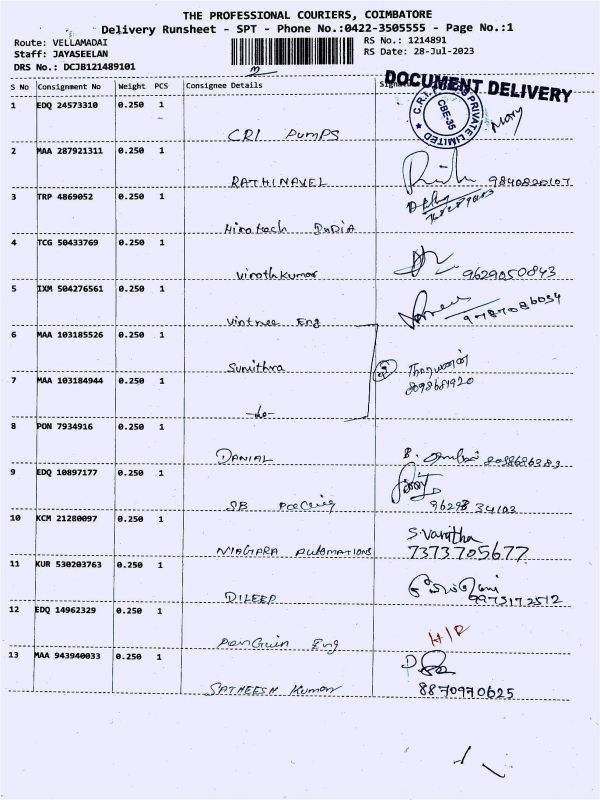 THE PROFESSIONAL COURIERS, COIMBATORE
Delivery Runsheet - SPT - Phone No.:0422-3505555 - Page No.:1
Route: VELLAMADAI
RS No.: 1214891
Staff: JAYASEELAN
RS Date: 28-Jul-2023
DRS No.: DCJB121489101
DOCUMENT DELIVERY
S No Consignment No Weight PCS Consignee Details
1 EDQ 24573310 0.250 1
CRI PUMPS
C.R.I. PRIVATE LIMITED
CBE-35
Mary
2 MAA 287921311 0.250 1
RATHINAVEL 9840820107
3 TRP 4869052 0.250 1
Hiratech INDIA
4 TCG 50433769 0.250 1
Vinothkumar 9629050843
5 IXM 504276561 0.250 1
Vintree Eng 9787086034
6 MAA 103185526 0.250 1
Sumithra
நாராயணன்
8098681920
7 MAA 103184944 0.250 1
-do-
8 PON 7934916 0.250 1
DANIAL B.
9 EDQ 10897177 0.250 1
SB
10 KCM 21280097 0.250 1
S.Vanitha
NIAGARA AUTOMATIONS 7373705677
11 KUR 530203763 0.250 1
DILEEP 9975172512
12 EDQ 14962329 0.250 1
H/R
PenGuin Eng
13 MAA 943940033 0.250 1
SATHEESH Kumar 8870970625